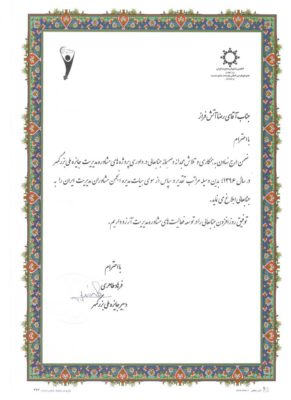 جناب آقای رضا آتش فراز
با احترام
ضمن ارج نهادن به همکاری و تلاش مجدانه و صمیمانه جنابعالی در داوری پروژه های مشاوره مدیریت جایزه ملی بزرگمهر
در سال (۱۳۹۶)؛ بدین وسیله مراتب تقدیر و سپاس از سوی هیات مدیره انجمن مشاوران مدیریت ایران را به
جنابعالی ابلاغ می نماید.
توفیق روزافزون جنابعالی را در توسعه فعالیت های مشاوره مدیریت آرزومندیم.
با احترام
فرهاد طاهری
دبیر جایزه ملی بزرگمهر